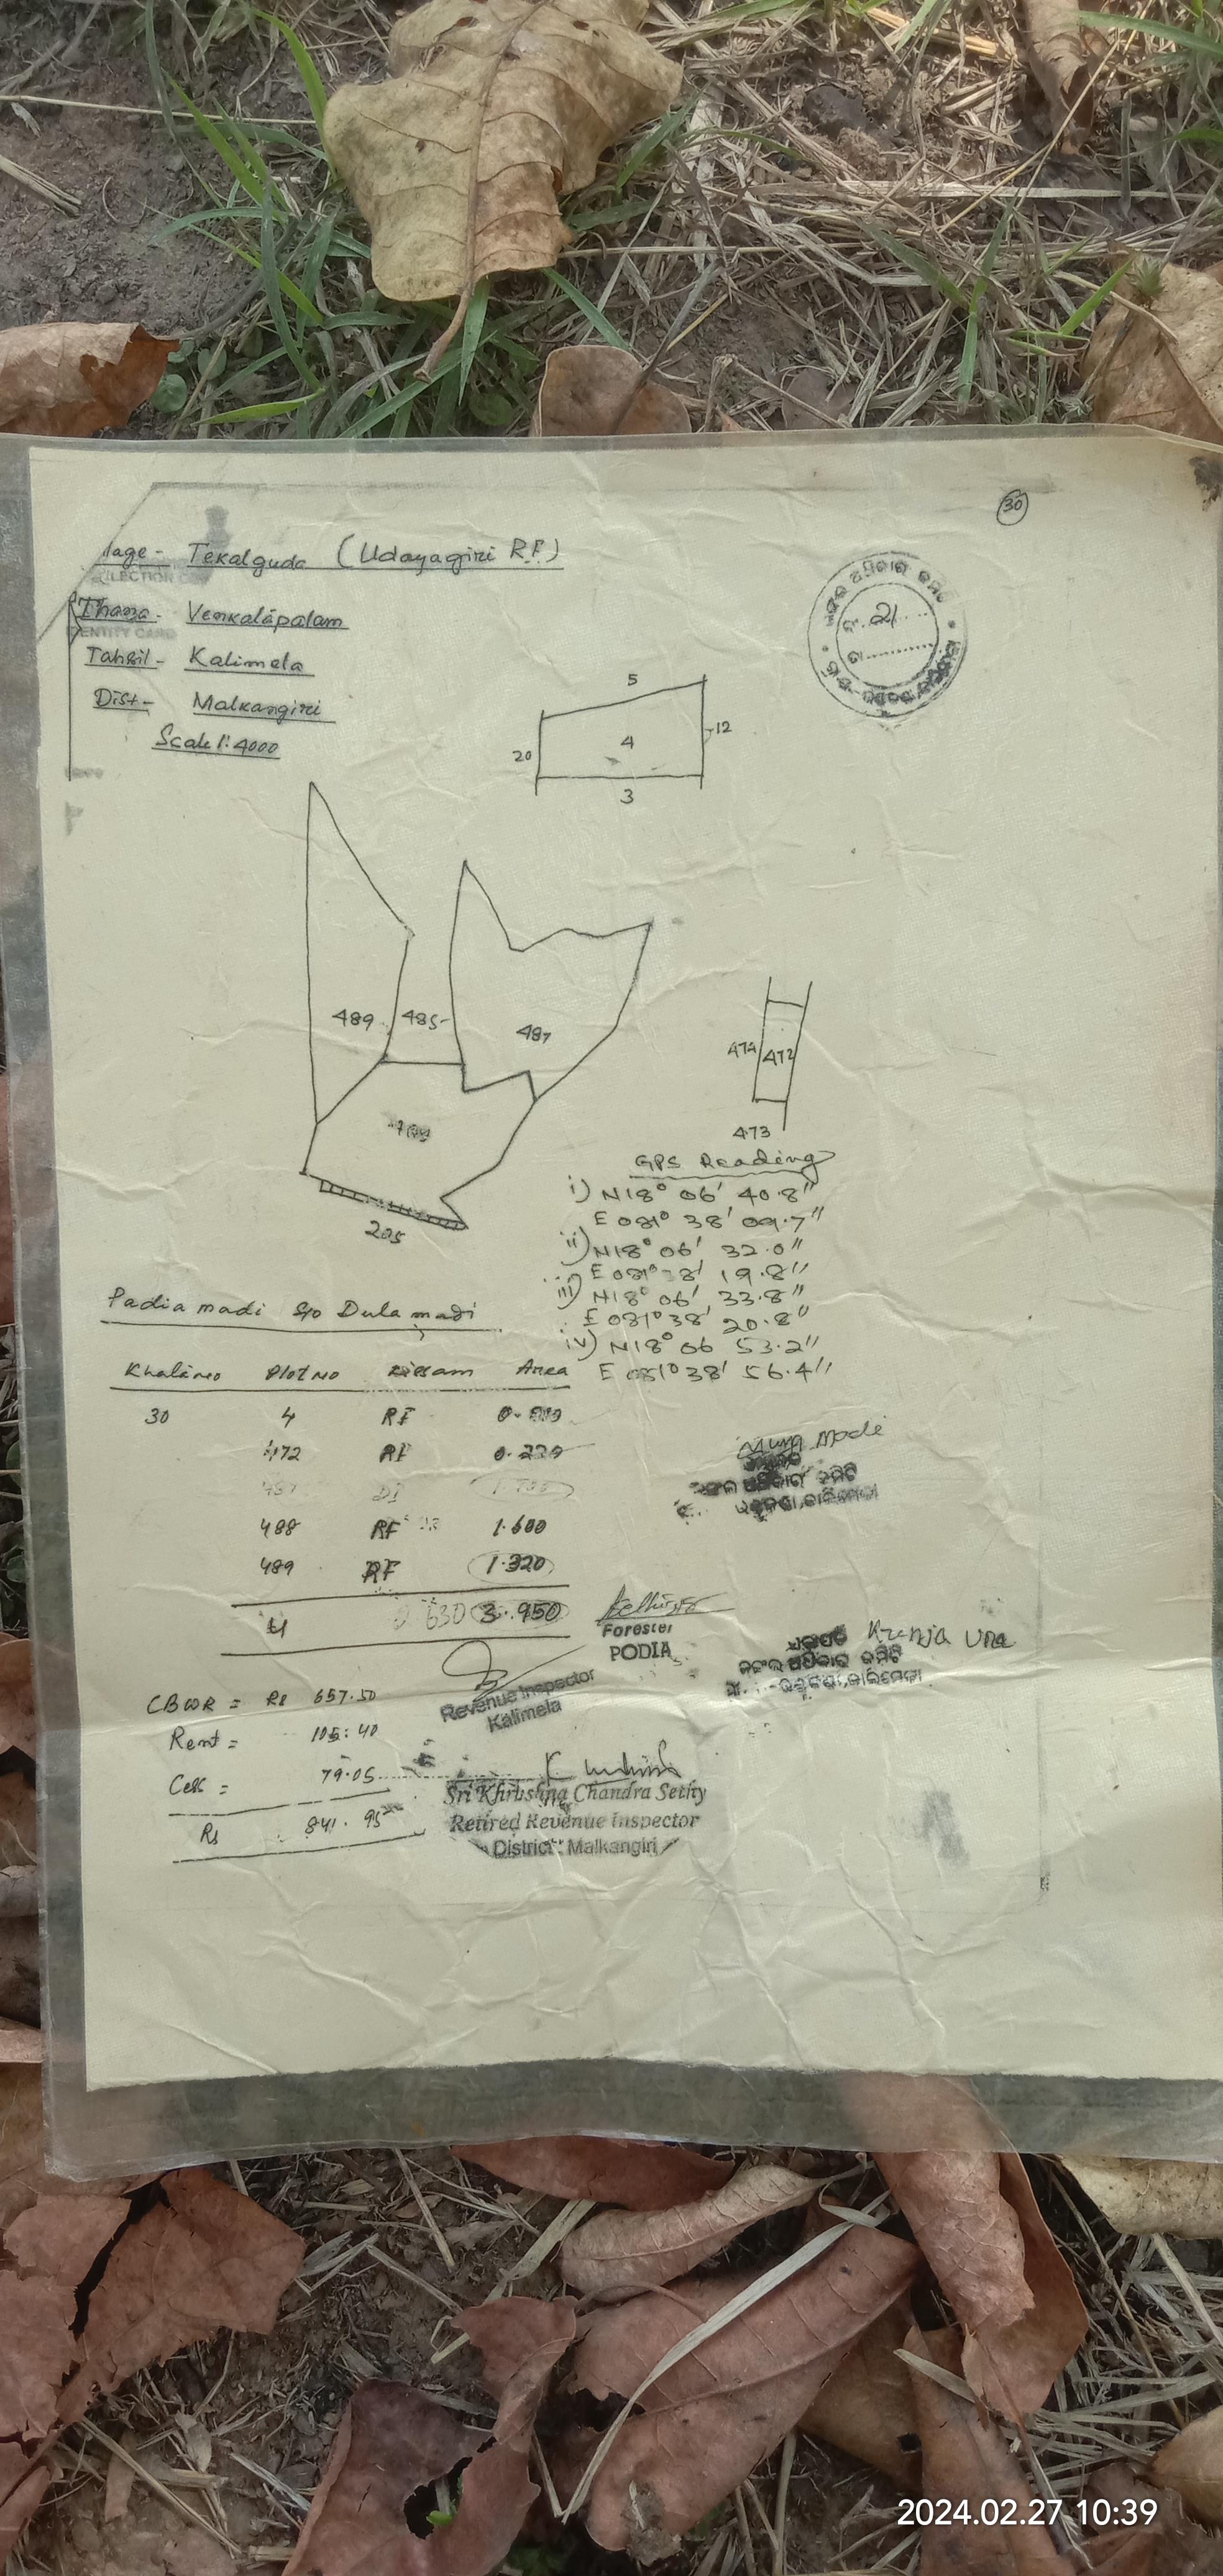 30
Tekalguda (Udayagiri RF)
Thana- Venkalapalam
ENTITY CARD
Tahsil- Kalimela
Dist- Malkangiri
Scale 1:4000
21
5
20 4 12
3
489 485 487
474 472
473
205
GPS Reading
i) N18° 06' 40.8"
E 081° 38' 09.7"
ii) N18° 06' 32.0"
E 081° 38' 19.8"
iii) N18° 06' 33.8"
E 081° 38' 20.8"
iv) N18° 06 53.2"
E 081° 38' 56.4"
Padia madi S/o Dula madi
Plot No Kissam Area
30 4 RF
472 RF 0.220
488 RF 1.600
489 RF 1.320
4 3.950
Forester
PODIA
Revenue Inspector
Kalimela
ଜଙ୍ଗଲ ଅଧିକାର କମିଟି
CBWR = Rs 657.50
Rent = 105:40
Cess = 79.05
Rs 841.95
Sri Khrushna Chandra Sethy
Retired Revenue Inspector
District: Malkangiri
2024.02.27 10:39